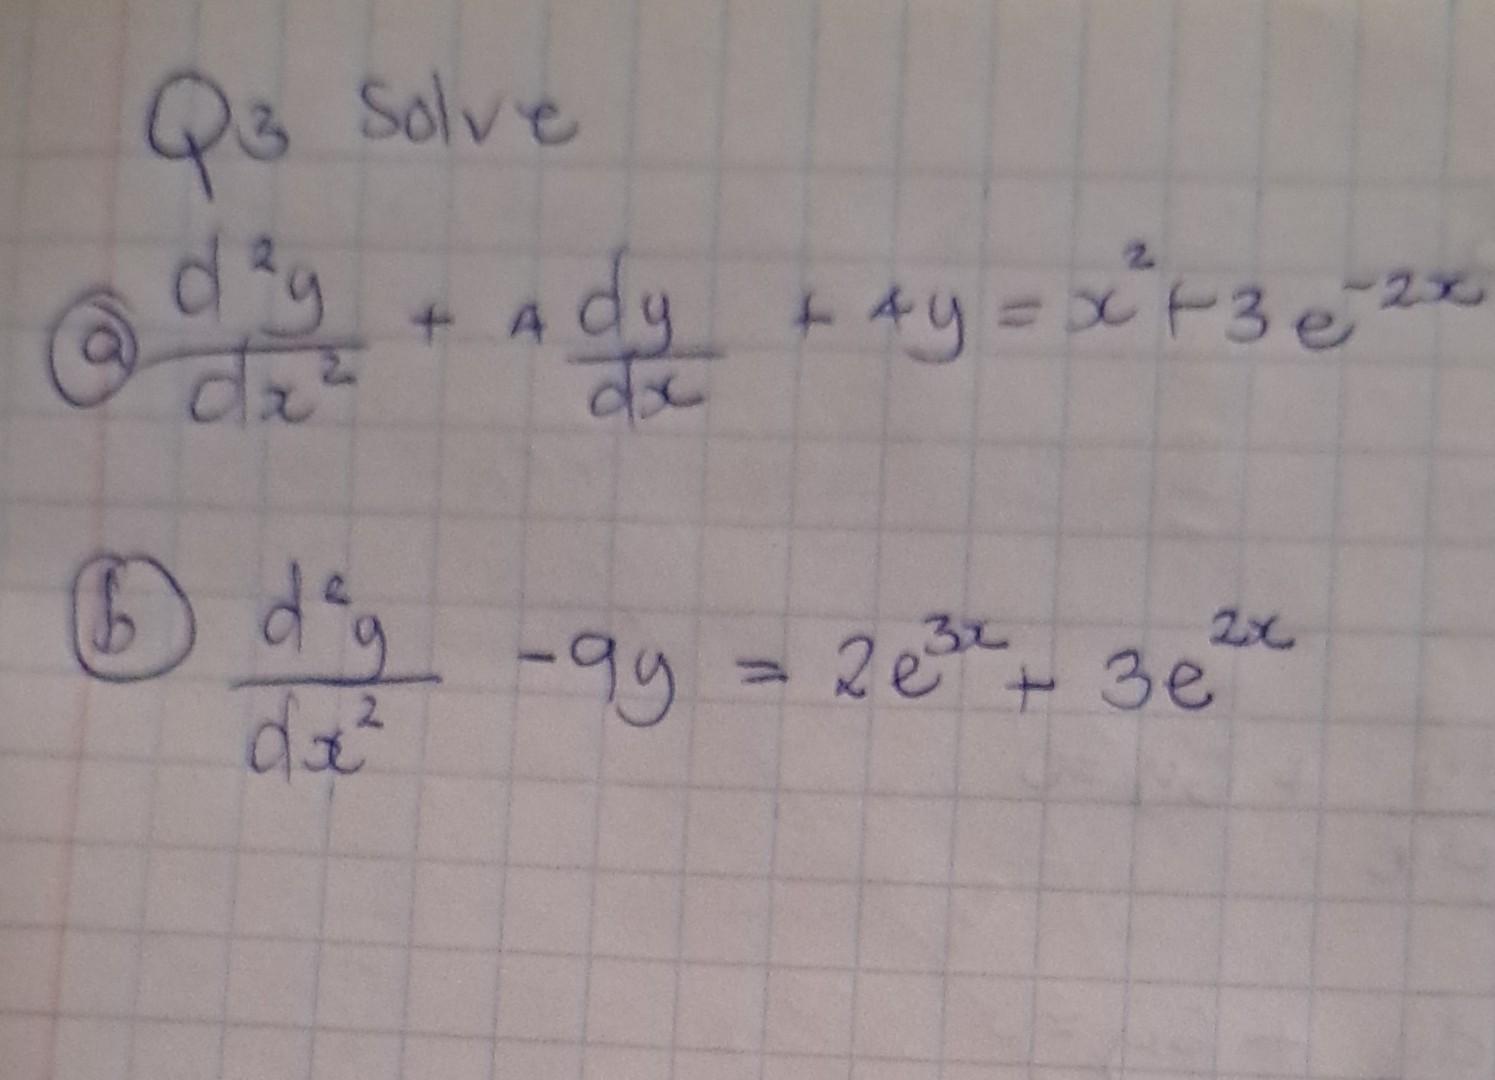 Q3 Solve
ⓐ d²y/dx² + 4 dy/dx + 4y = x² + 3e^-2x
ⓑ d²y/dx² - 9y = 2e^3x + 3e^2x